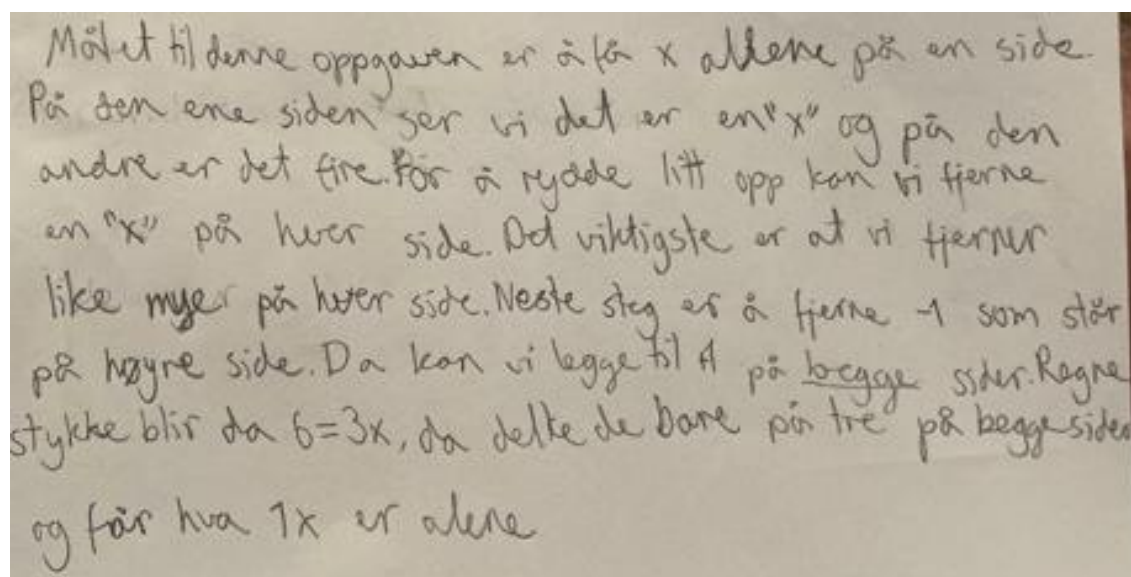 Målet til denne oppgaven er å få x allene på en side.
På den ene siden ser vi det er en "x" og på den
andre er det fire. For å rydde litt opp kan vi fjerne
en "x" på hver side. Det viktigste er at vi fjerner
like mye på hver side. Neste steg er å fjerne -1 som står
på høyre side. Da kan vi legge til 1 på begge sider. Regne
stykke blir da 6=3x, da delte de bare på tre på begge sider
og får hva 1x er alene